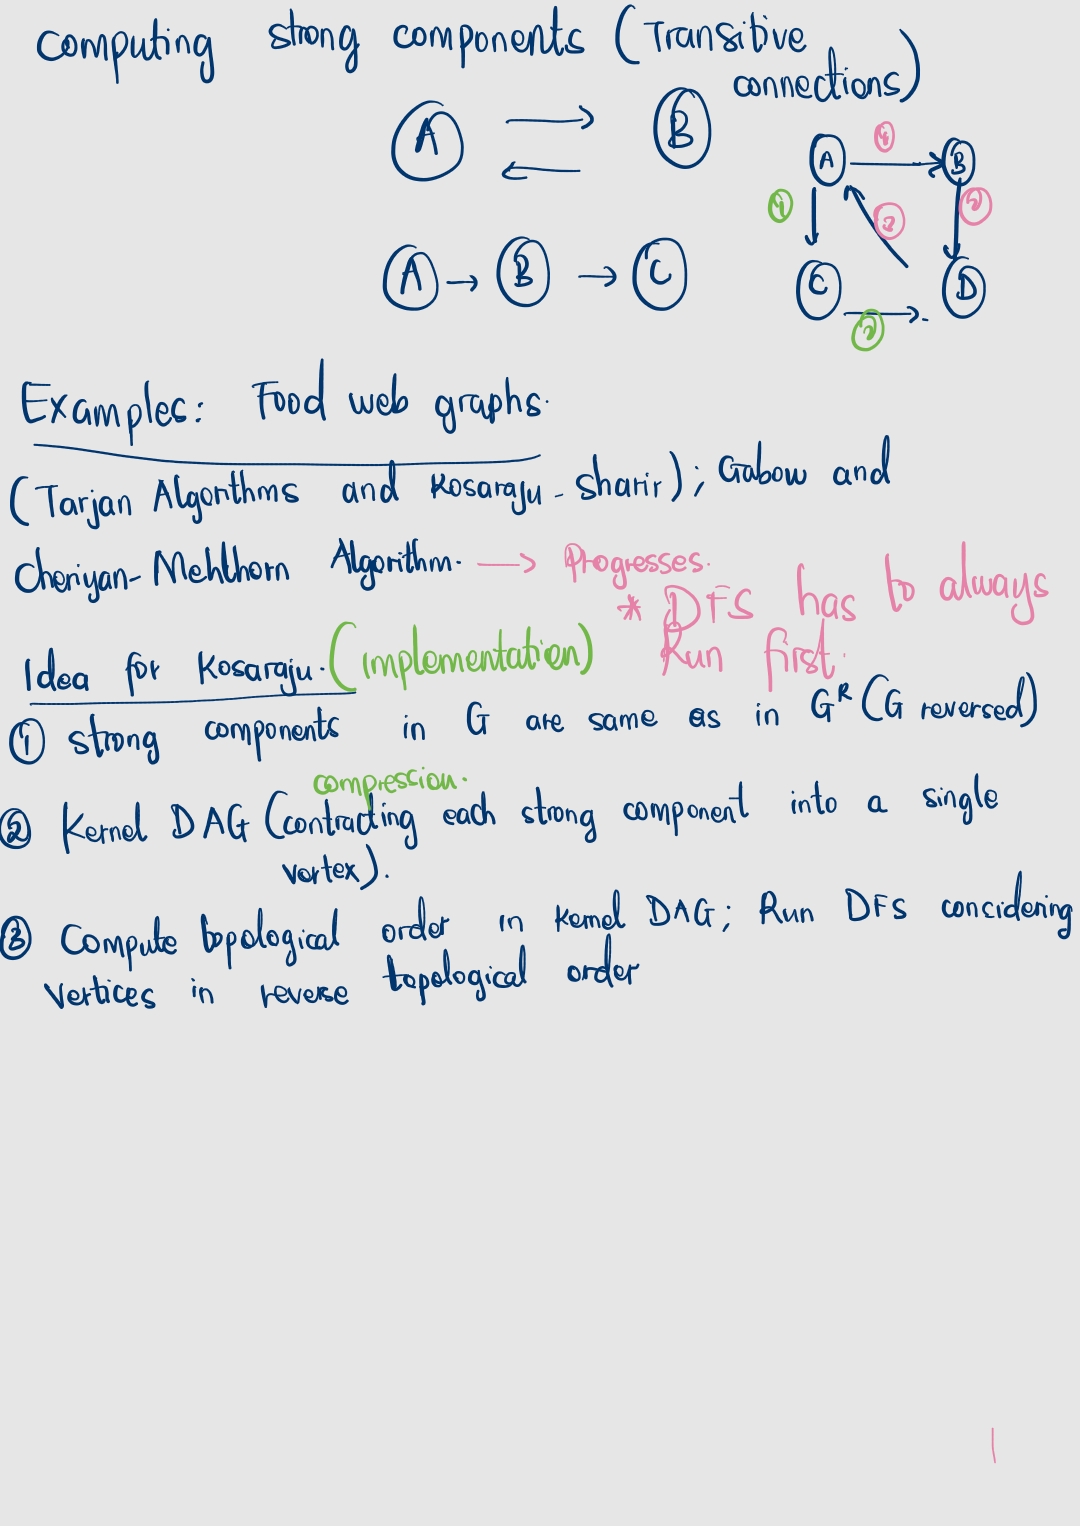 computing strong components (Transitive
connections)
A B
A B
④ ① ② ③
A B C
C D
②
Examples: Food web graphs.
(Tarjan Algorithms and Kosaraju - sharir); Gabow and
Cheriyan-Mehlhorn Algorithm. → Progresses.
* DFS has to always
Run first.
Idea for Kosaraju. (implementation)
① strong components in G are same as in Gᴿ (G reversed)
compression.
② Kernel DAG (contracting each strong component into a single
vortex).
③ Compute topological order in Kernel DAG; Run DFS concidering
Vertices in reverse topological order